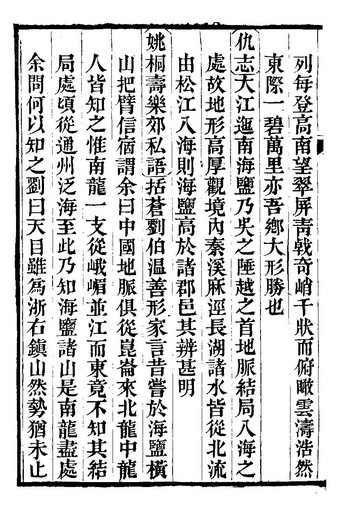 列每登高南望翠屏靑戟奇峭千狀而俯瞰雲濤浩然
東際一碧萬里亦吾鄉大形勝也
仇志大江迤南海鹽乃吳之陲越之首地脈結局入海之
處故地形高厚觀境內秦溪麻涇長湖諸水皆從北流
由松江入海則海鹽高於諸郡邑其辨甚明
姚桐壽樂郊私語括蒼劉伯温善形家言昔嘗於海鹽橫
山把臂信宿謂余曰中國地脈俱從崑崙來北龍中龍
人皆知之惟南龍一支從峨嵋並江而東竟不知其結
局處頃從通州泛海至此乃知海鹽諸山是南龍盡處
余問何以知之劉曰天目雖爲浙右鎭山然勢猶未止